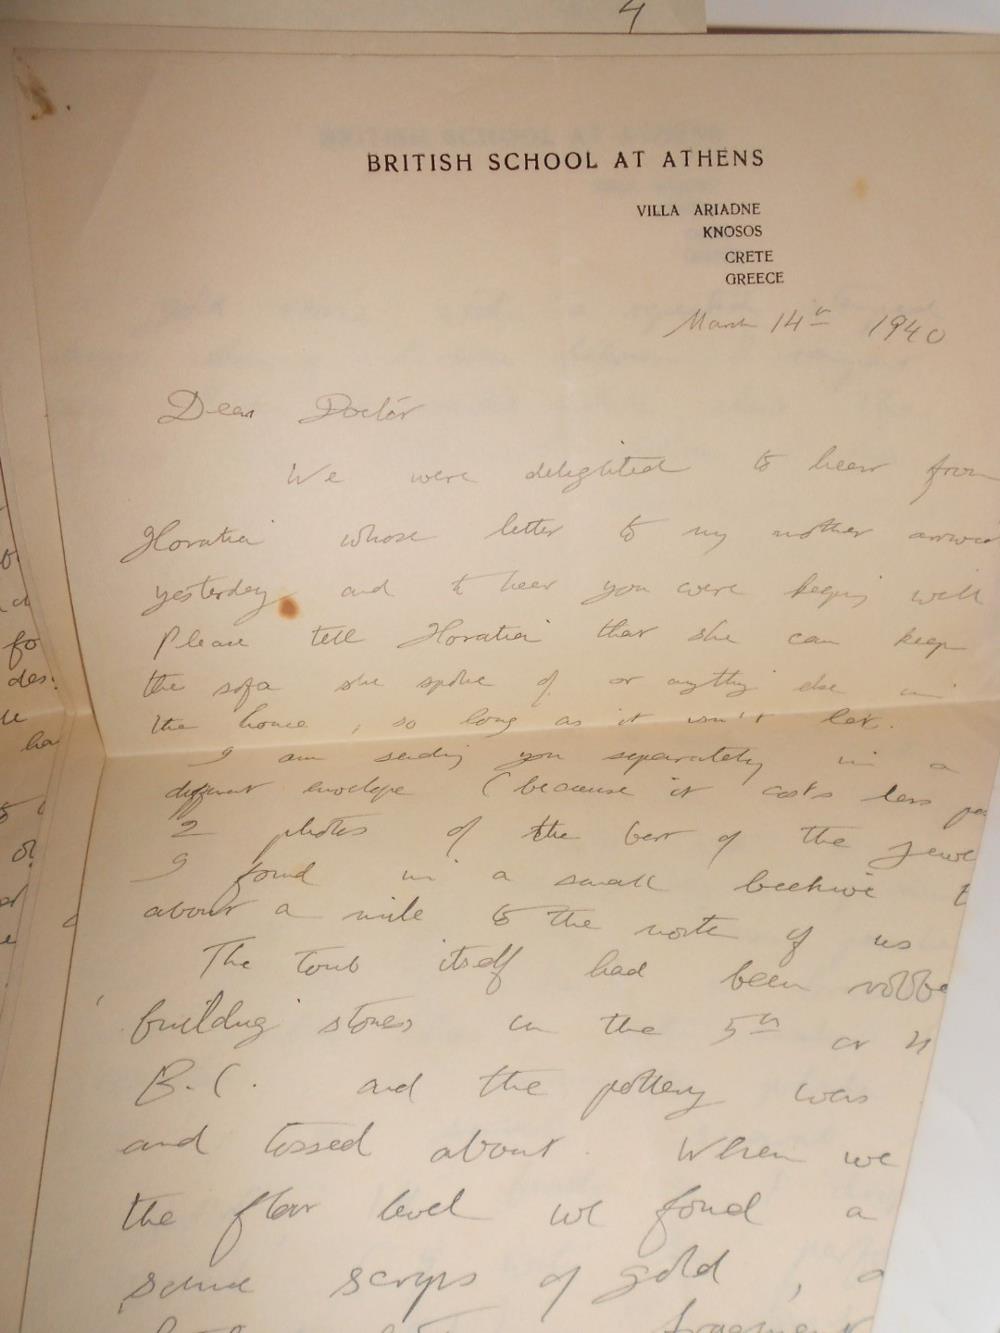 4
BRITISH SCHOOL AT ATHENS
VILLA ARIADNE
KNOSOS
CRETE
GREECE
March 14th 1940
Dear Doctor
We were delighted to hear from
Horatia whose letter to my mother
yesterday and to hear you were keeping well
Please tell Horatia that she can keep
the sofa she spoke of or anything else in
the house, so long as it isn't let.
I am sending you separately in a
different envelope (because it costs less
2 photos of the best of the
I found in a small beehive
about a mile to the north of us
The tomb itself had been
building stones in the 5th or
B.C. and the pottery was
and tossed about. When we
the floor level we found a
scraps of gold,